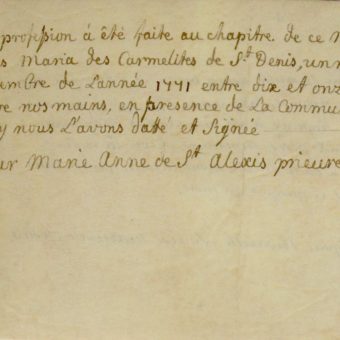 profession á été faite au chapitre de ce M
s Maria des Carmelites de St. Denis, un m
embre de L'année 1771 entre dix et onz
re nos mains, en presence de La Commu
y nous L'avons datté et Signée
ur Marie Anne de St Alexis prieure